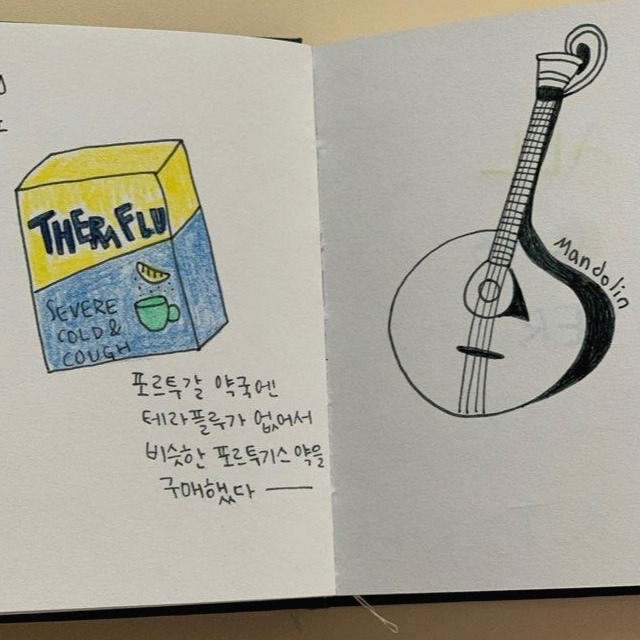 THERAFLU
SEVERE
COLD &
COUGH
포르투갈 약국엔
테라플루가 없어서
비슷한 포르투기스 약을
구매했다 —
Mandolin